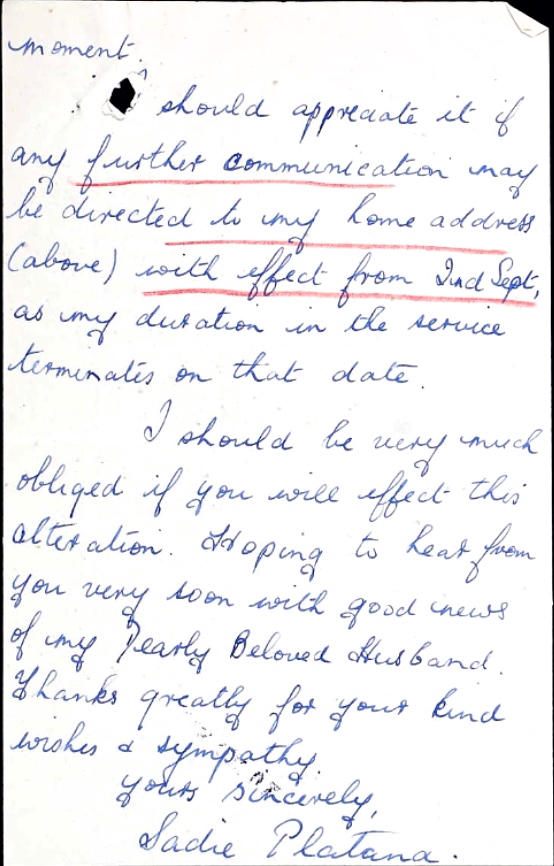 moment.
I should appreciate it if
any further communication may
be directed to my home address
(above) with effect from 2nd Sept,
as my duration in the service
terminates on that date.
I should be very much
obliged if you will effect this
alteration. Hoping to hear from
you very soon with good news
of my Dearly Beloved Husband.
Thanks greatly for your kind
wishes & sympathy
yours sincerely,
Sadie Platana.